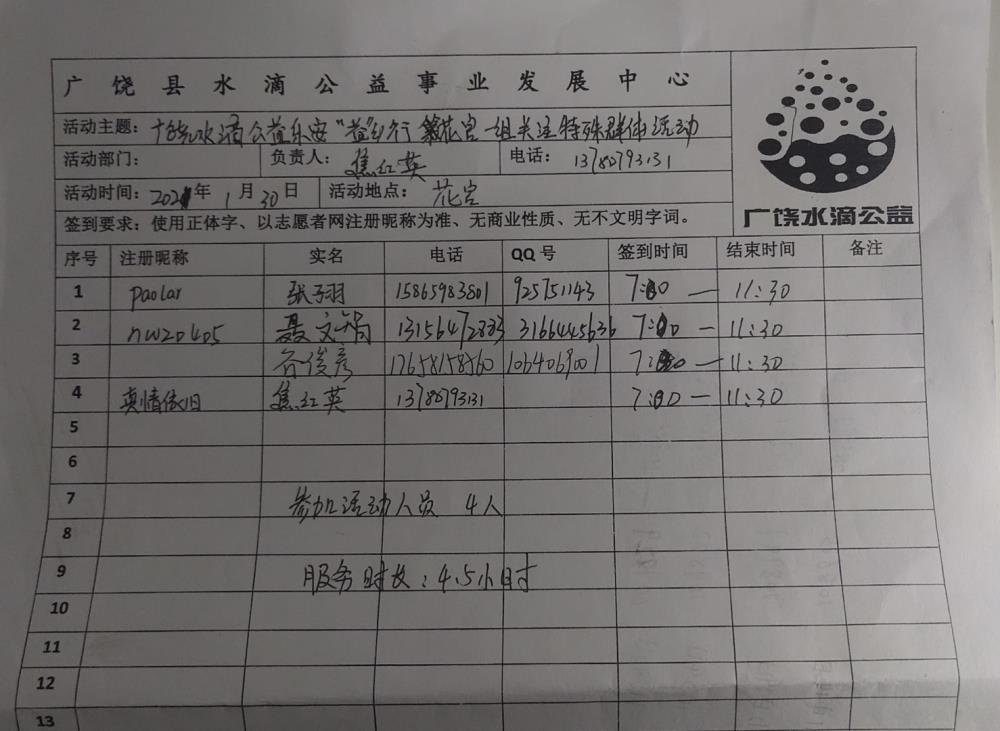 广饶县水滴公益事业发展中心
活动主题：广饶水滴公益乐安“益”乡行 花官一组关注特殊群体活动
活动部门： 负责人：焦红英 电话：13780793131
活动时间：2021年1月30日 活动地点：花官
签到要求：使用正体字、以志愿者网注册昵称为准、无商业性质、无不文明字词。
广饶水滴公益
序号 注册昵称 实名 电话 QQ号 签到时间 结束时间 备注
1 paolar 张子羽 15865983801 925751143 7:00 — 11:30
2 nw20405 聂文 13156472883 3166445636 7:00 — 11:30
3 谷俊彦 17658158560 1064069001 7:00 — 11:30
4 真情依旧 焦红英 13780793131 7:00 — 11:30
5
6
7 参加活动人员 4人
8
9 服务时长：4.5小时
10
11
12
13